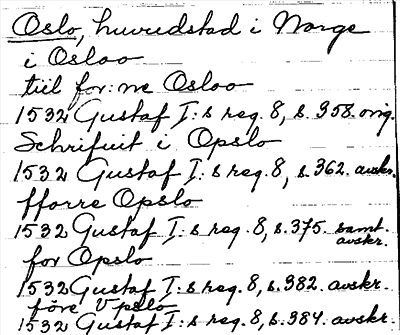 Oslo, huvudstad i Norge
i Osloo
tiil for:ne Osloo
1532 Gustaf I:s reg. 8, s. 358. orig.
Schrifuit i Opslo
1532 Gustaf I:s reg. 8, s. 362. avskr.
fforre Opslo
1532 Gustaf I:s reg. 8, s. 375. samt. avskr.
for Opslo
1532 Gustaf I:s reg. 8, s. 382. avskr.
före Vpslo
1532 Gustaf I:s reg. 8, s. 384. avskr.